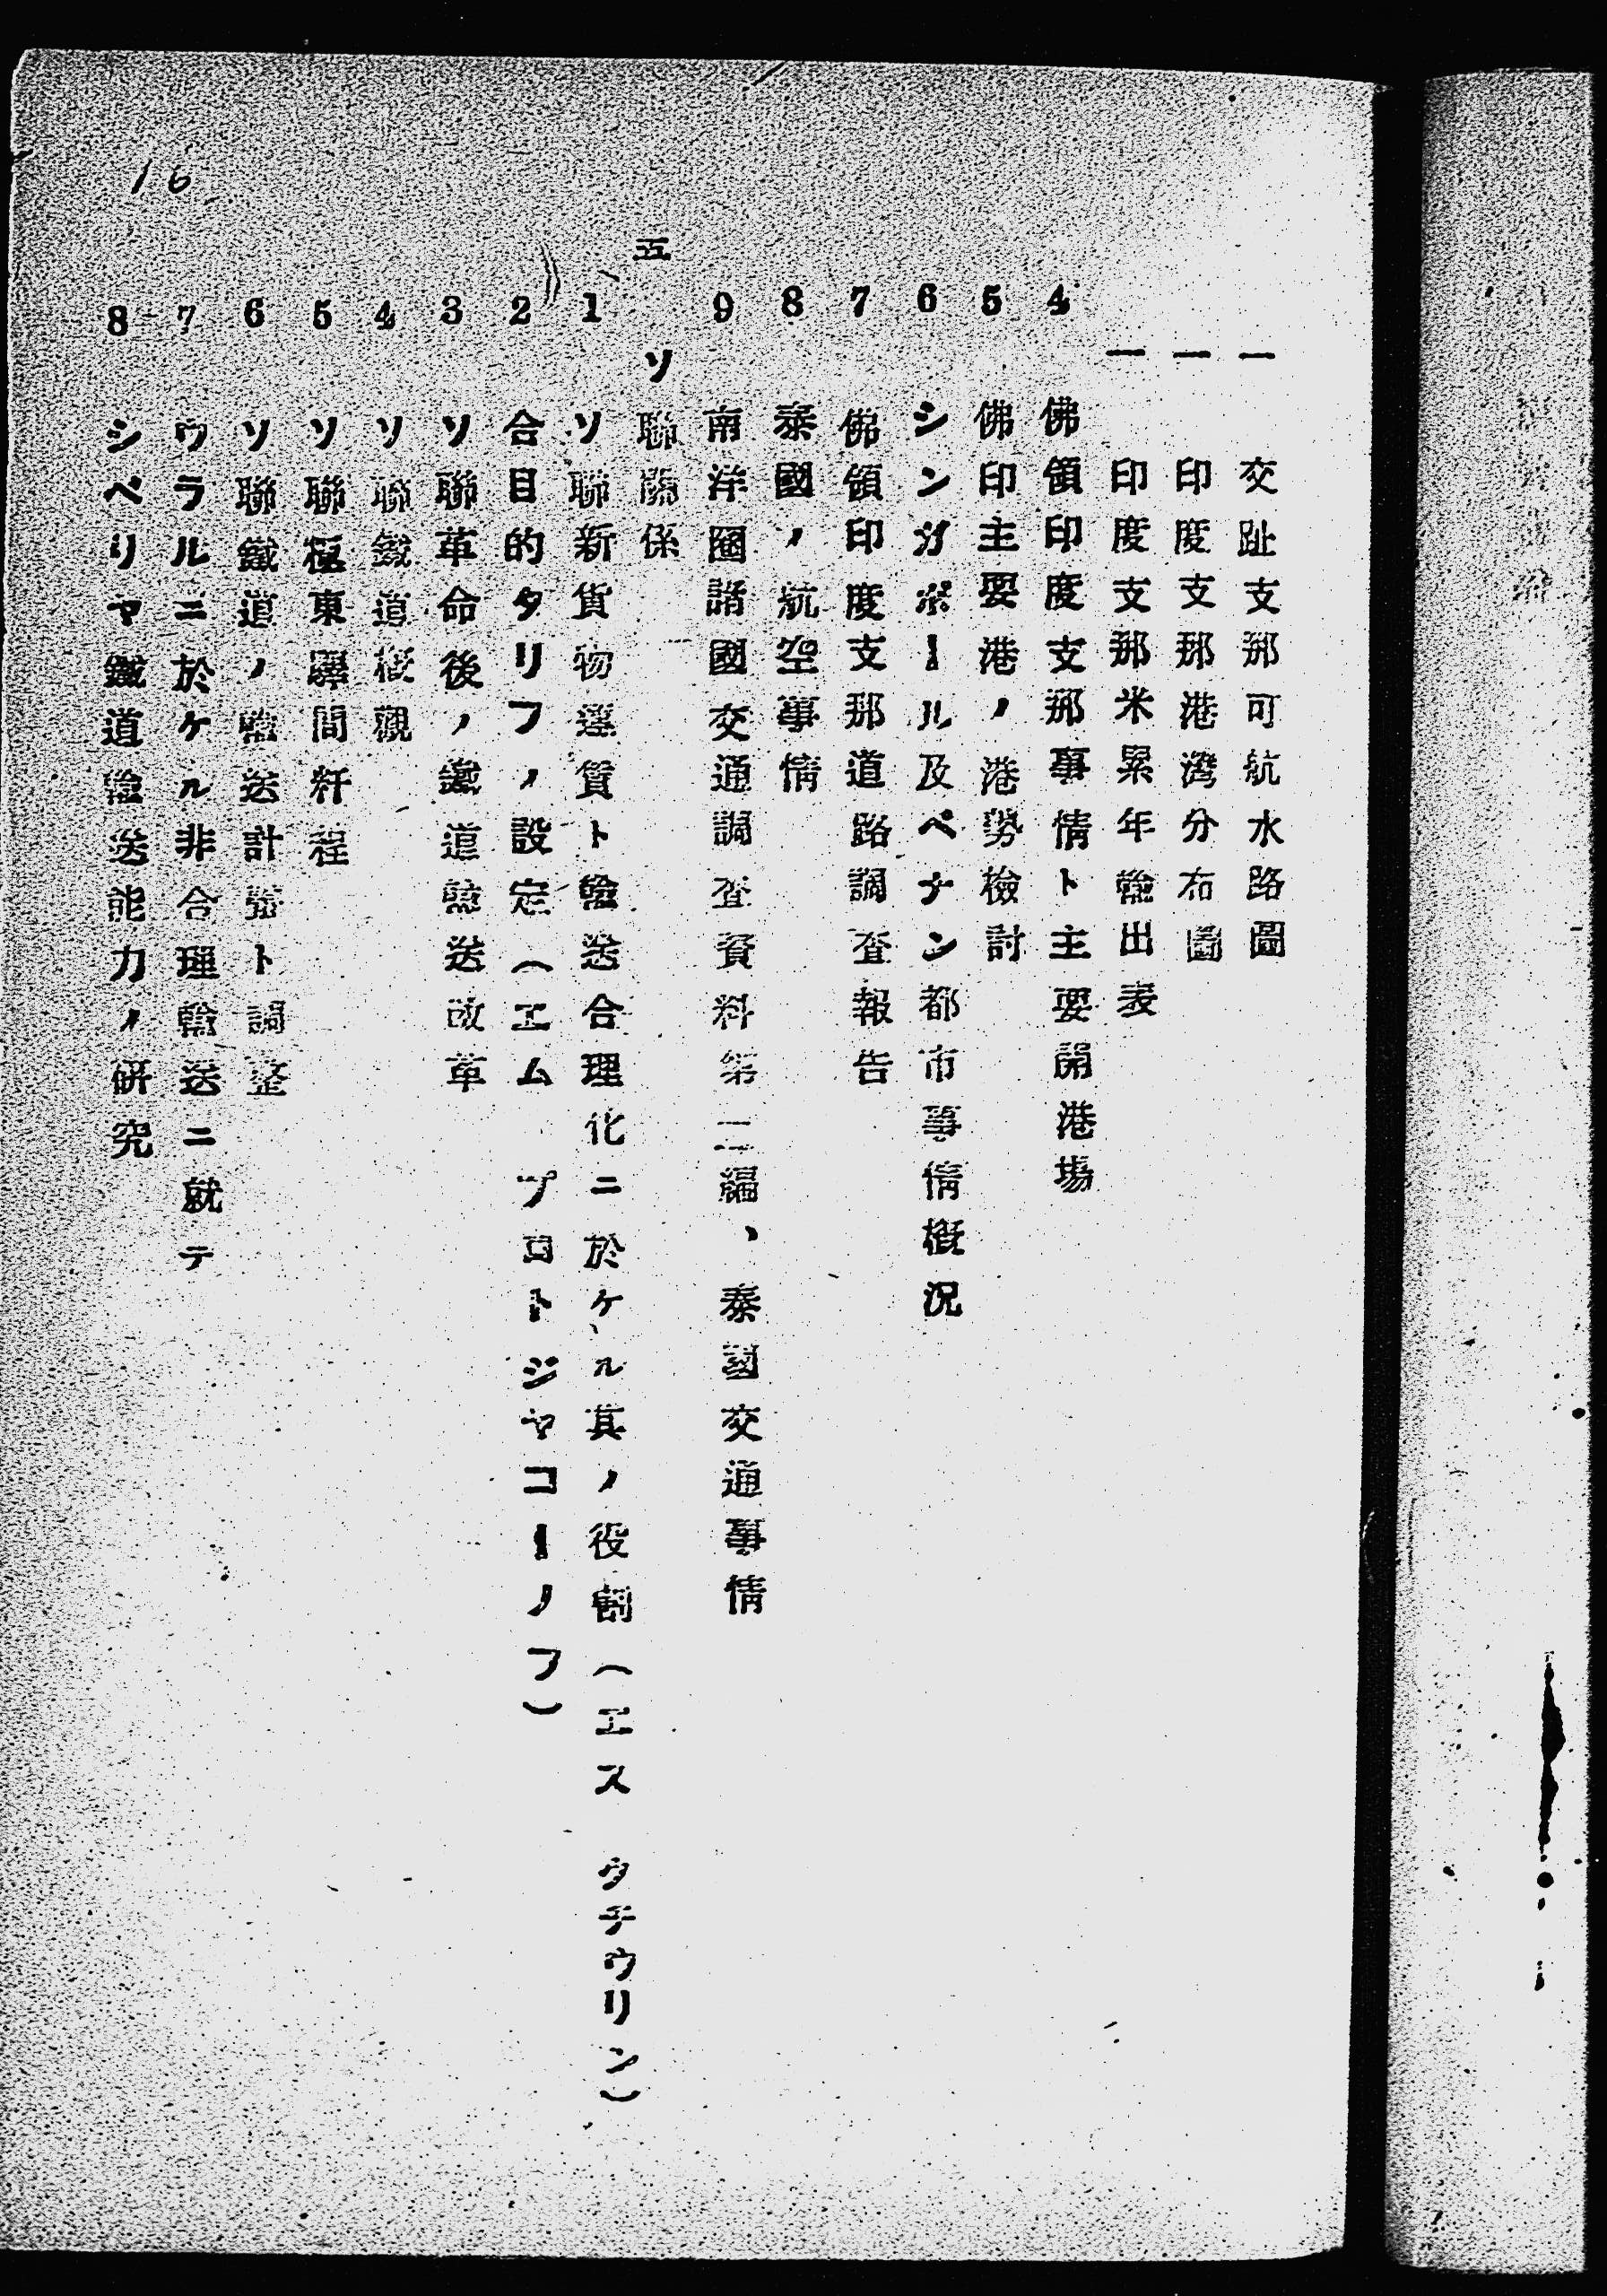 一　交趾支那可航水路圖
一　印度支那港灣分布圖
一　印度支那米累年輸出表
4　佛領印度支那事情ト主要開港場
5　佛印主要港ノ港勢檢討
6　シンガポール及ペナン都市事情概況
7　佛領印度支那道路調査報告
8　泰國ノ航空事情
9　南洋圈諸國交通調査資料第二編、泰國交通事情
五、ソ聯關係
1　ソ聯新貨物運賃ト輸送合理化ニ於ケル其ノ役割（エス　タチウリン）
2　合目的タリフノ設定（エム　プロトジヤコーノフ）
3　ソ聯革命後ノ鐵道輸送改革
4　ソ聯鐵道概觀
5　ソ聯極東驛間粁程
6　ソ聯鐵道ノ輸送計畫ト調整
7　ウラルニ於ケル非合理輸送ニ就テ
8　シベリヤ鐵道輸送能力ノ研究
16